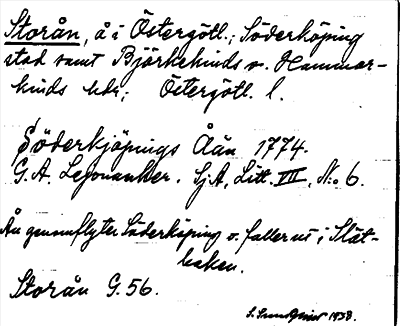 Storån, å i Östergötl.; Söderköping
stad samt Björkekinds o. Hammar-
kinds hdr; Östergötl. l.
Söderkjöpings Åån 1774.
G. A. Lejonanker. Sj A, Litt. III, No. 6.
Ån genomflyter Söderköping o. faller ut i Slät-
baken.
Storån G. 56.
1938.